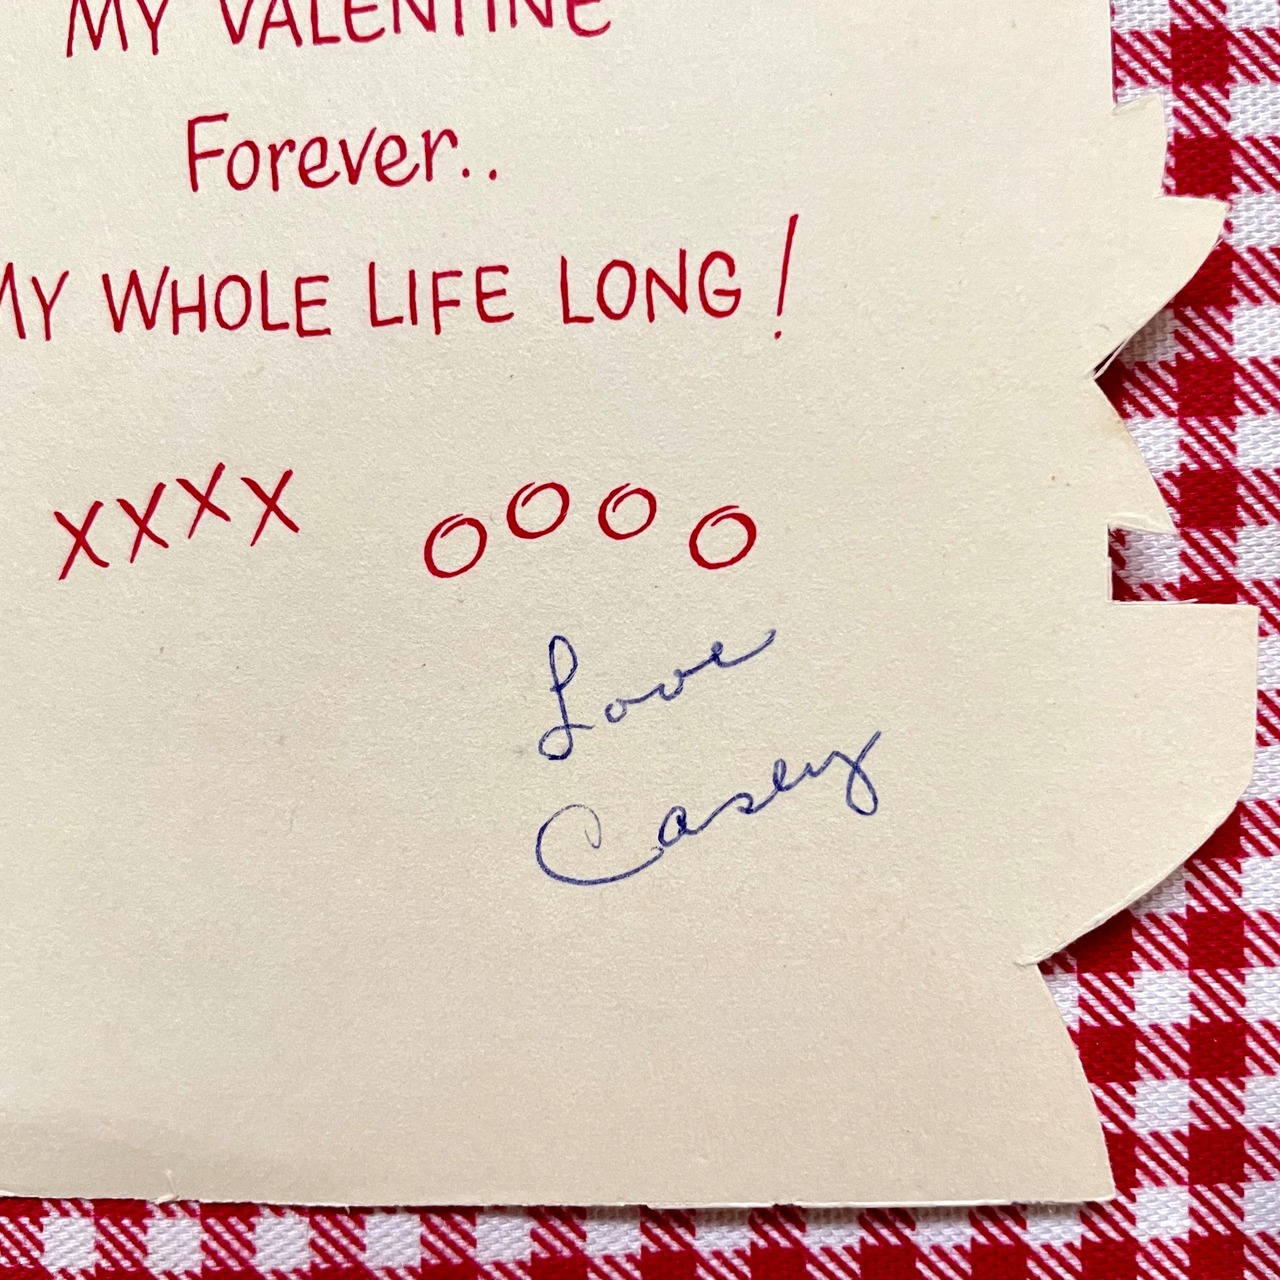 MY VALENTINE
Forever..
MY WHOLE LIFE LONG!
XXXX OOOO
Love
Casey